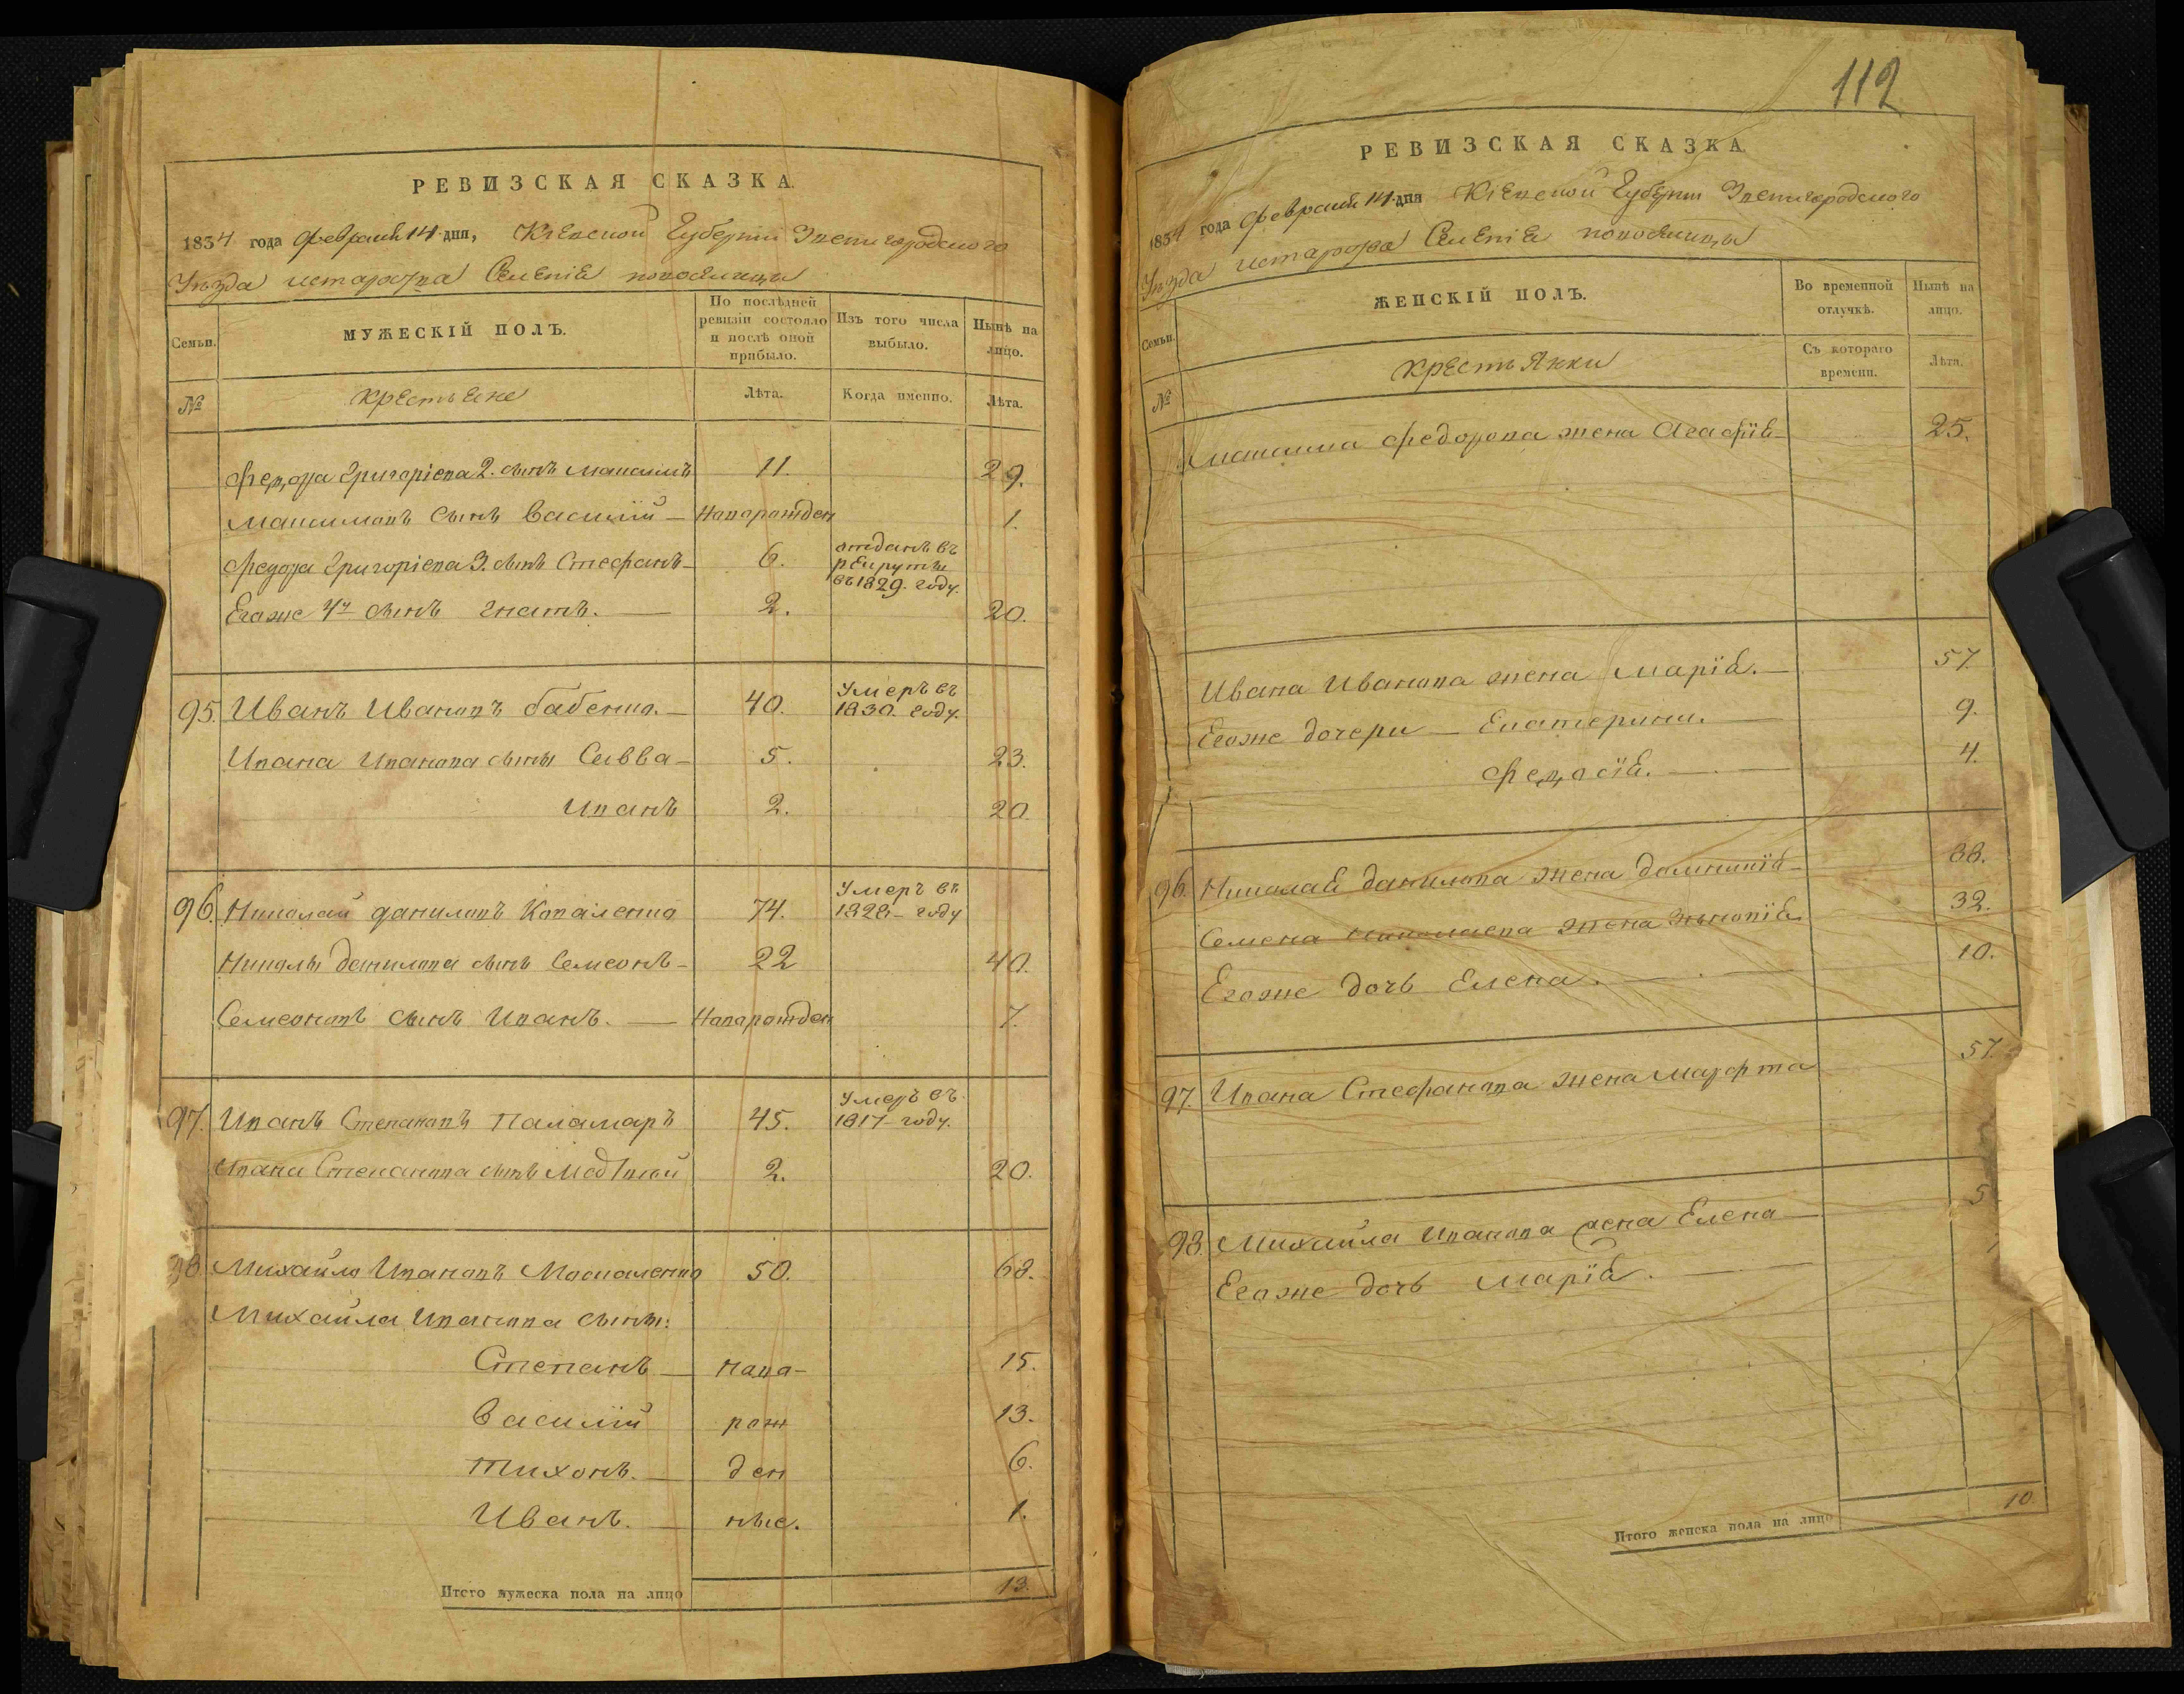 РЕВИЗСКАЯ СКАЗКА.
1834 года Февраля 14 дня, Кіевской Губерніи Звенигородского
Уезда Селеніе новоселица
Семьи.
МУЖЕСКІЙ ПОЛЪ.
По послѣдней ревизіи состояло и послѣ оной прибыло.
Изъ того числа выбыло.
Нынѣ на лицо.
№
крестьене
Лѣта.
Когда именно.
Лѣта.
Федора Григоріева 2. сынъ Максимъ 11. 29.
Максимовъ сынъ Василій — Новорожден 1.
Федора Григоріева 3. сынъ Стефанъ — 6. отданъ въ рекруты въ 1829. году.
Егоже 4й сынъ Гнатъ. — 2. 20.
95. Иванъ Ивановъ бабенко. — 40. Умеръ въ 1830. году.
Ивана Иванова сыны Савва — 5. 23.
Иванъ 2. 20.
96. Николай Даниловъ Коваленко 74. Умеръ въ 1828 — году
Николы Данилова сынъ Семеонъ — 22 40.
Семеоновъ сынъ Иванъ. — Новорожден 7.
97. Иванъ Степановъ Паламаръ 45. Умеръ въ 1817 — году.
Ивана Степанова сынъ 2. 20.
98. Михайло Ивановъ Москаленко 50. 68.
Михайла Иванова сыны:
Степанъ — ново- 15.
Василій рож 13.
Тихонъ. — ден 6.
Иванъ. — ные. 1.
Итого мужеска пола на лицо 13.
112
РЕВИЗСКАЯ СКАЗКА.
1834 года Февраля 14 дня Кіевской Губерніи Звенигородского
Уезда Селеніе новоселицы
Семьи.
ЖЕНСКІЙ ПОЛЪ.
Во временной отлучкѣ.
Нынѣ на лицо.
№
крестьянки
Съ котораго времени.
Лѣта.
Максима Федорова жена Агафія — 25.
Ивана Иванова жена Марія. — 57
Егоже дочери — Екатерина. — 9.
Федосія. — 4.
96. Николая Данилова жена Домникія — 88.
Семена Николаева жена Зѣновія. 32.
Егоже дочь Елена. — 10.
97. Ивана Стефанова жена Марфта 57.
98. Михайла Иванова жена Елена — 5
Егоже дочь Марія. —
Итого женска пола на лицо 10.